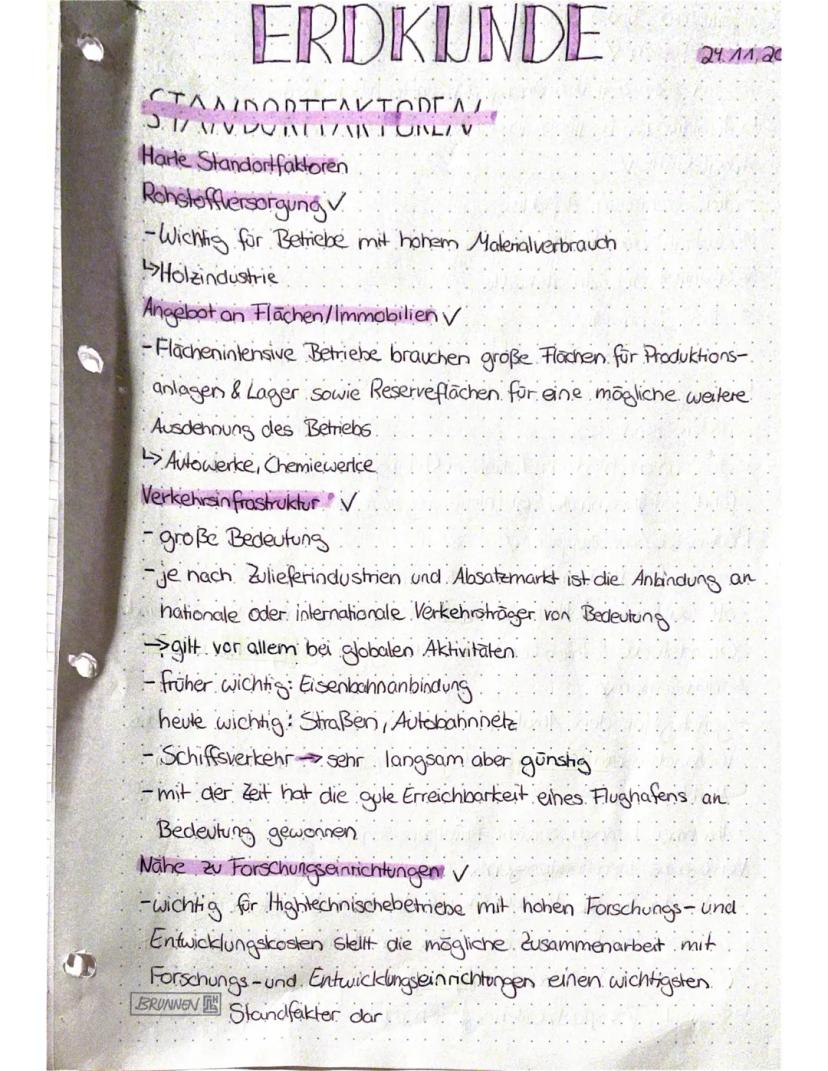 ERDKUNDE
24.11.20
STANDORTFAKTOREN
Harte Standortfaktoren
Rohstoffversorgung ✓
- Wichtig für Betriebe mit hohem Materialverbrauch
↳ Holzindustrie
Angebot an Flächen/Immobilien ✓
- Flächenintensive Betriebe brauchen große Flächen für Produktions-
anlagen & Lager sowie Reserveflächen für eine mögliche weitere
Ausdehnung des Betriebs
↳ Autowerke, Chemiewerke
Verkehrsinfrastruktur ✓
- große Bedeutung
- je nach Zulieferindustrien und Absatzmarkt ist die Anbindung an
nationale oder internationale Verkehrsträger von Bedeutung
→ gilt vor allem bei globalen Aktivitäten
- früher wichtig: Eisenbahnanbindung
heute wichtig: Straßen, Autobahnnetz
- Schiffsverkehr → sehr langsam aber günstig
- mit der Zeit hat die gute Erreichbarkeit eines Flughafens an
Bedeutung gewonnen
Nähe zu Forschungseinrichtungen ✓
- wichtig für Hightechnischebetriebe mit hohen Forschungs- und
Entwicklungskosten stellt die mögliche Zusammenarbeit mit
Forschungs- und Entwicklungseinrichtungen einen wichtigsten
BRUNNEN
Standfakter dar